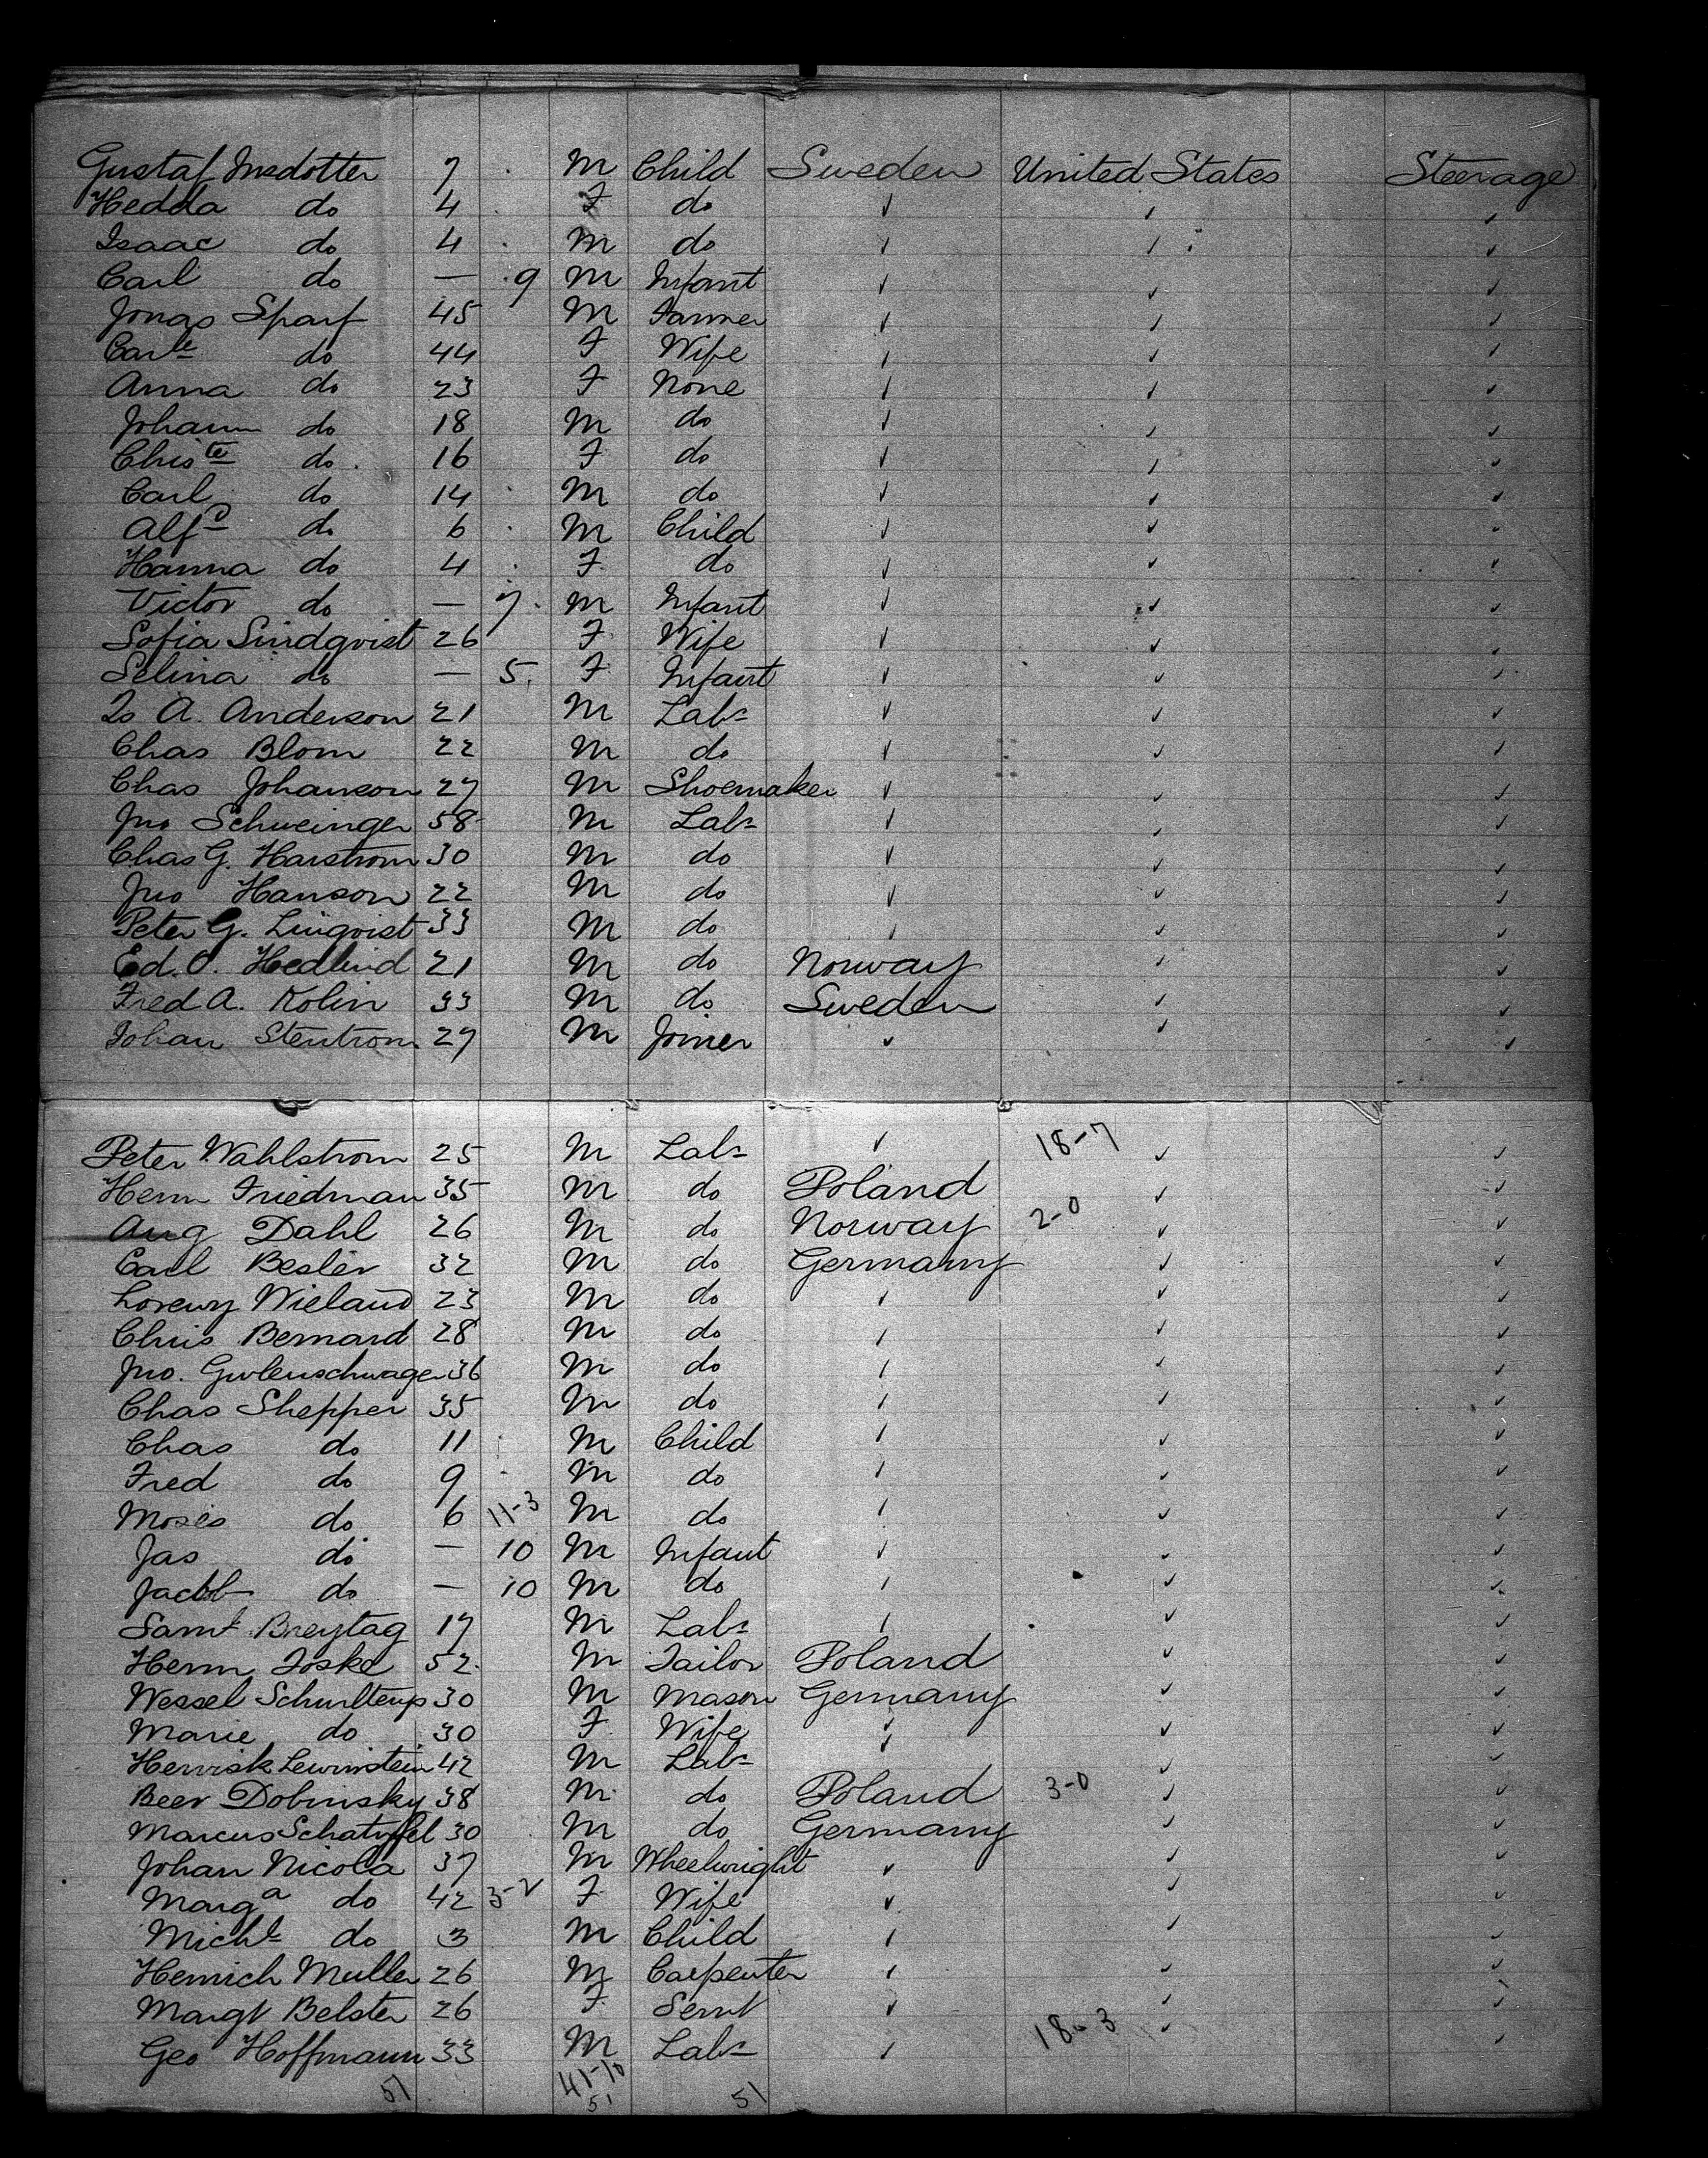 Gustaf Insdotter 7 M Child Sweden United States Steerage
Hedda do 4 F do ✓ ✓ ✓
Isaac do 4 M do ✓ ✓ ✓
Carl do — 9 M Infant ✓ ✓ ✓
Jonas Sparf 45 M Farmer ✓ ✓ ✓
Carle do 44 F Wife ✓ ✓ ✓
Anna do 23 F None ✓ ✓ ✓
Johann do 18 M do ✓ ✓ ✓
Christe do 16 F do ✓ ✓ ✓
Carl do 14 M do ✓ ✓ ✓
Alfd do 6 M Child ✓ ✓ ✓
Hanna do 4 F do ✓ ✓ ✓
Victor do — 7 M Infant ✓ ✓ ✓
Sofia Lindqvist 26 F Wife ✓ ✓ ✓
Selina do — 5 F Infant ✓ ✓ ✓
A. Anderson 21 M Labr ✓ ✓ ✓
Chas Blom 22 M do ✓ ✓ ✓
Chas Johanson 27 M Shoemaker ✓ ✓ ✓
Jno Schweinger 58 M Labr ✓ ✓ ✓
Chas G. Harstrom 30 M do ✓ ✓ ✓
Jno Hanson 22 M do ✓ ✓ ✓
Peter G. Linqvist 33 M do ✓ ✓ ✓
Ed. O. Hedlund 21 M do Norway ✓ ✓
Fred A. Kolin 33 M do Sweden ✓ ✓
Johan Stentrom 27 M Joiner ✓ ✓ ✓
Peter Wahlstrom 25 M Labr ✓ 18-7 ✓ ✓
Herm Friedman 35 M do Poland ✓ ✓
Aug Dahl 26 M do Norway 2-0 ✓ ✓
Carl Besler 32 M do Germany ✓ ✓
Lorewy Wieland 23 M do ✓ ✓ ✓
Chris Bernard 28 M do ✓ ✓ ✓
Jno. 36 M do ✓ ✓ ✓
Chas Shepper 35 M do ✓ ✓ ✓
Chas do 11 M Child ✓ ✓ ✓
Fred do 9 M do ✓ ✓ ✓
Moses do 6 11-3 M do ✓ ✓ ✓
Jas do — 10 M Infant ✓ ✓ ✓
Jacob do — 10 M do ✓ ✓ ✓
Saml Breytag 17 M Labr ✓ ✓ ✓
Herm Joske 52 M Tailor Poland ✓ ✓
Wessel Schultenp 30 M Mason Germany ✓ ✓
Marie do 30 F Wife ✓ ✓ ✓
Henrisk Lewinstein 42 M Labr ✓ ✓ ✓
Beer Dobinsky 38 M do Poland 3-0 ✓ ✓
Marcus 30 M do Germany ✓ ✓
Johan Nicola 37 M Wheelwright ✓ ✓ ✓
Marga do 42 3-2 F Wife ✓ ✓ ✓
Michl do 3 M Child ✓ ✓ ✓
Heinrich Muller 26 M Carpenter ✓ ✓ ✓
Margt Belster 26 F Servt ✓ ✓ ✓
Geo Hoffmann 33 M Labr ✓ 18-3 ✓ ✓
51 41-10 51
51